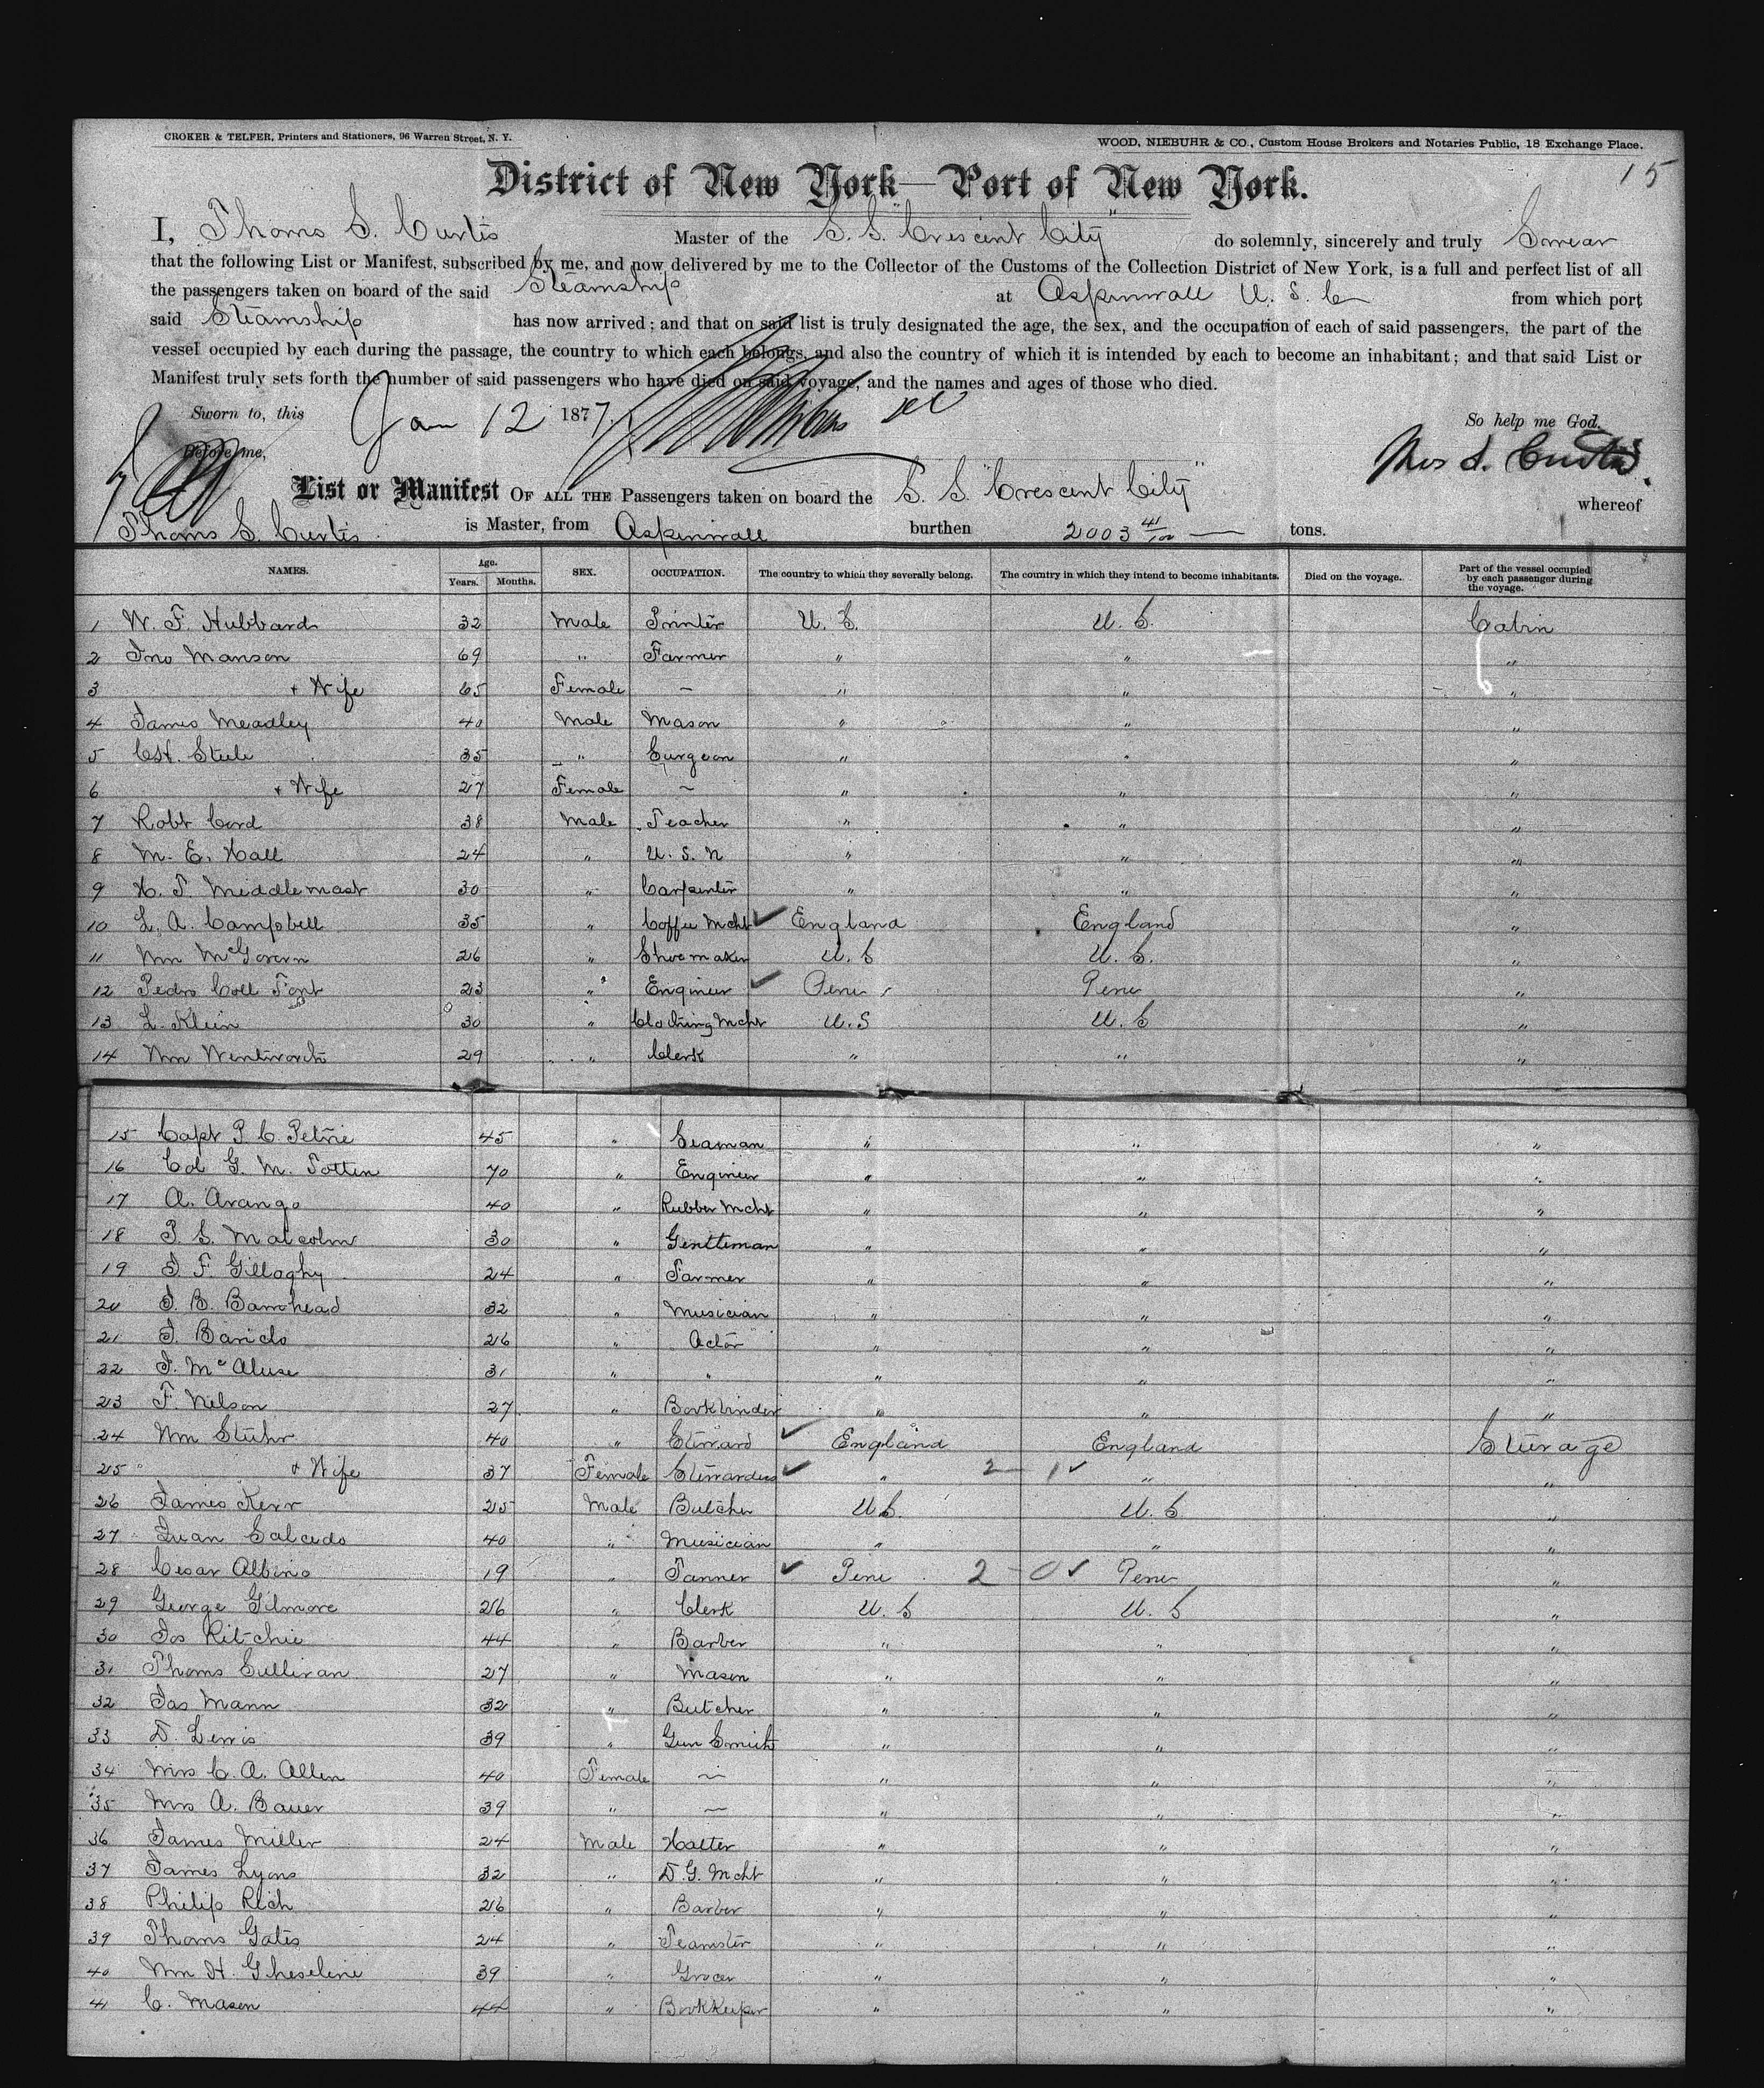 CROKER & TELFER, Printers and Stationers, 96 Warren Street, N. Y.
WOOD, NIEBUHR & CO., Custom House Brokers and Notaries Public, 18 Exchange Place.
15
District of New York—Port of New York.
I, Thoms S. Curtis Master of the S. S. "Crescent City" do solemnly, sincerely and truly Swear
that the following List or Manifest, subscribed by me, and now delivered by me to the Collector of the Customs of the Collection District of New York, is a full and perfect list of all
the passengers taken on board of the said Steamship at Aspinwall U. S. C from which port
said Steamship has now arrived; and that on said list is truly designated the age, the sex, and the occupation of each of said passengers, the part of the
vessel occupied by each during the passage, the country to which each belongs, and also the country of which it is intended by each to become an inhabitant; and that said List or
Manifest truly sets forth the number of said passengers who have died on said voyage, and the names and ages of those who died.
Sworn to, this Jan 12 1877. So help me God.
Before me, Thos S. Curtis.
List or Manifest OF ALL THE Passengers taken on board the S. S. "Crescent City" whereof
Thoms S. Curtis is Master, from Aspinwall burthen 2003 41/100 tons.
NAMES. Age. Years. Months. SEX. OCCUPATION. The country to which they severally belong. The country in which they intend to become inhabitants. Died on the voyage. Part of the vessel occupied by each passenger during the voyage.
1 W. F. Hubbard 32 Male Printer U. S. U. S. Cabin
2 Jno Manson 69 " Farmer " " "
3 + Wife 65 Female — " " "
4 James Meadley 40 Male Mason " " "
5 C.H. Steele 35 " Surgeon " " "
6 + Wife 27 Female ~ " " "
7 Robt Cord 38 Male Teacher " " "
8 M. E. Hall 24 " U. S. N " " "
9 H. T. Middlemast 30 " Carpenter " " "
10 L. A. Campbell 35 " Coffee Mcht ✓ England England "
11 Wm McGovern 26 " Shoemaker U. S U. S. "
12 Pedro Coll Font 23 " Engineer ✓ Peru Peru "
13 L. Klein 30 " Clothing Mcht U. S U. S "
14 Wm Wentworth 29 " Clerk " " "
15 Capt P C. Petrie 45 " Seaman " " "
16 Col G. M. Totten 70 " Engineer " " "
17 A. Arango 40 " Rubber Mcht " " "
18 P. S. Malcolm 30 " Genttiman " " "
19 J F. Gilloghy 24 " Farmer " " "
20 J. B. Bamhead 32 " Musician " " "
21 J. 26 " Actor " " "
22 J. 31 " " " " "
23 F. Nelson 27 " Bookbinder " " "
24 Wm Stuhr 40 " Steward ✓ England England Steerage
25 " + Wife 37 Female Stewardess ✓ " 2 — 1 ✓ " "
26 James Kerr 25 Male Butcher U. S. U. S "
27 Juan Salcedo 40 " Musician " " "
28 Cesar Albino 19 " Tanner ✓ Peru 2 — 0 ✓ Peru "
29 George Gilmore 26 " Clerk U. S U. S "
30 Jos Ritchie 44 " Barber " " "
31 Thoms Sullivan 27 " Mason " " "
32 Jas Mann 32 " Butcher " " "
33 D. Lewis 39 " Gun Smith " " "
34 Mrs C. A. Allen 40 Female ~ " " "
35 Mrs A. Bauer 39 " ~ " " "
36 James Miller 24 Male Hatter " " "
37 James Lyons 32 " D. G. Mcht " " "
38 Philip Rich 26 " Barber " " "
39 Thoms Gates 24 " Teamster " " "
40 Wm H. Gheseline 39 " Grocer " " "
41 C. Mason 44 " Bookkeeper " " "